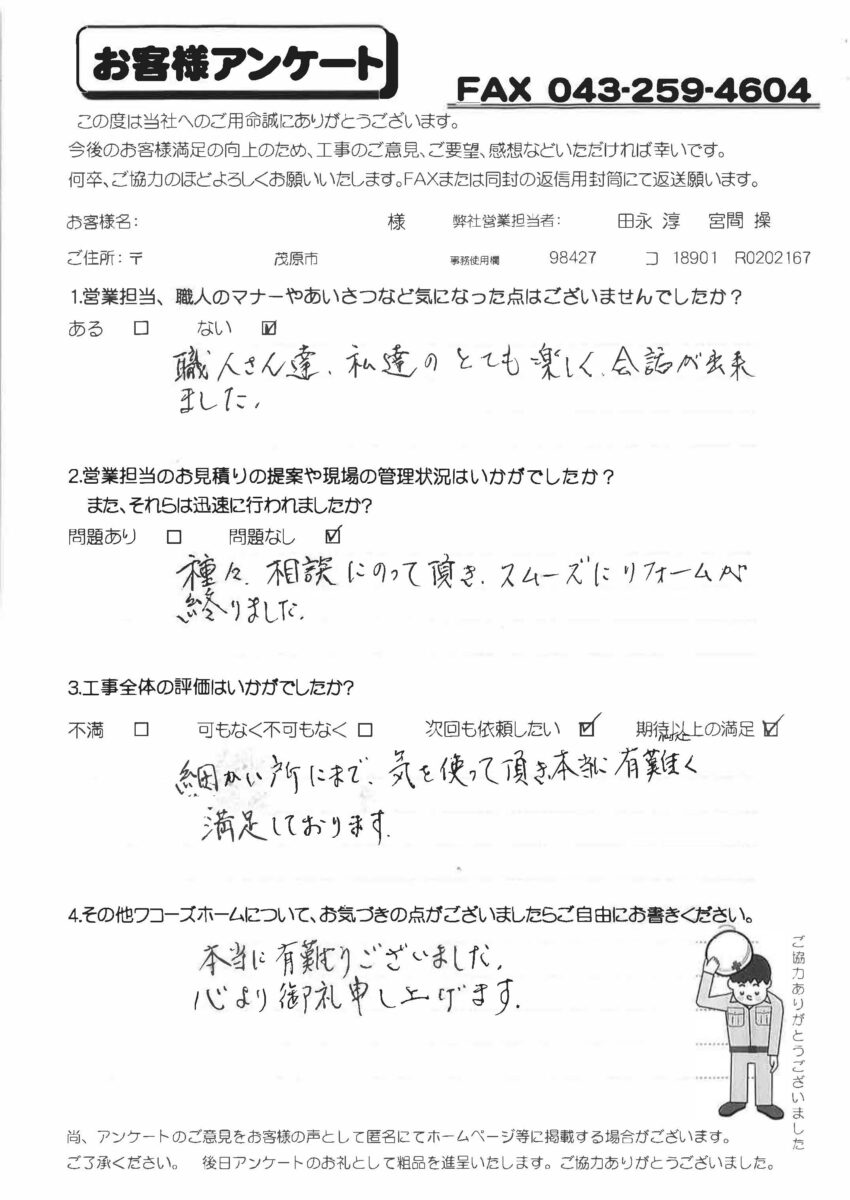 お客様アンケート
FAX 043-259-4604
この度は当社へのご用命誠にありがとうございます。
今後のお客様満足の向上のため、工事のご意見、ご要望、感想などいただければ幸いです。
何卒、ご協力のほどよろしくお願いいたします。FAXまたは同封の返信用封筒にて返送願います。
お客様名: 様 弊社営業担当者: 田永 淳 宮間 操
ご住所:〒 茂原市 事務使用欄 98427 コ 18901 R0202167
1.営業担当、職人のマナーやあいさつなど気になった点はございませんでしたか?
ある □ ない ☑
職人さん達、私達のとても楽しく、会話が出来
ました。
2.営業担当のお見積りの提案や現場の管理状況はいかがでしたか?
また、それらは迅速に行われましたか?
問題あり □ 問題なし ☑
種々、相談にのって頂き、スムーズにリフォームが
終りました。
3.工事全体の評価はいかがでしたか?
不満 □ 可もなく不可もなく □ 次回も依頼したい ☑ 期待以上の満足 ☑
細かい所にまで、気を使って頂き本当に有難く
満足しております。
4.その他ワコーズホームについて、お気づきの点がございましたらご自由にお書きください。
本当に有難うございました。
心より御礼申し上げます。
ご協力ありがとうございました
尚、アンケートのご意見をお客様の声として匿名にてホームページ等に掲載する場合がございます。
ご了承ください。 後日アンケートのお礼として粗品を進呈いたします。ご協力ありがとうございました。